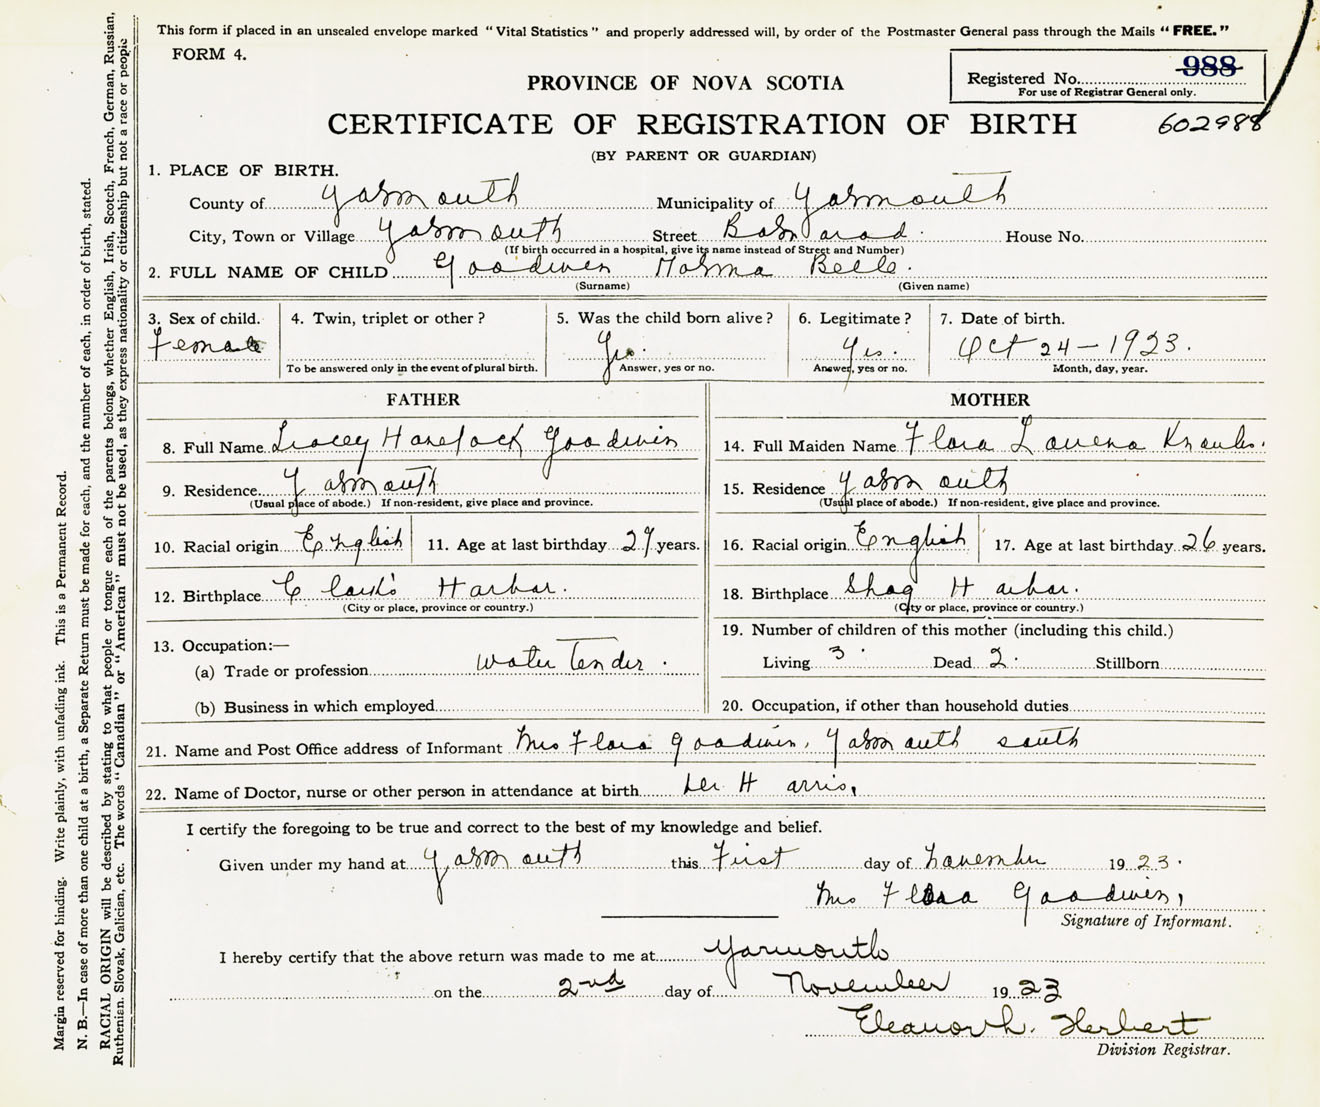 This form if placed in an unsealed envelope marked "Vital Statistics" and properly addressed will, by order of the Postmaster General pass through the Mails "FREE."
FORM 4.
Registered No. 988
For use of Registrar General only.
602988
PROVINCE OF NOVA SCOTIA
CERTIFICATE OF REGISTRATION OF BIRTH
(BY PARENT OR GUARDIAN)
1. PLACE OF BIRTH.
County of Yarmouth Municipality of Yarmouth
City, Town or Village Yarmouth Street House No.
(If birth occurred in a hospital, give its name instead of Street and Number)
2. FULL NAME OF CHILD Goodwin Norma Belle.
(Surname) (Given name)
3. Sex of child. 4. Twin, triplet or other? 5. Was the child born alive? 6. Legitimate? 7. Date of birth.
Female Yes. Yes. Oct 24-1923.
To be answered only in the event of plural birth. Answer, yes or no. Answer, yes or no. Month, day, year.
FATHER MOTHER
8. Full Name Havelock Goodwin 14. Full Maiden Name Flora Knowles.
9. Residence Yarmouth 15. Residence Yarmouth
(Usual place of abode.) If non-resident, give place and province. (Usual place of abode.) If non-resident, give place and province.
10. Racial origin English 11. Age at last birthday years. 16. Racial origin English 17. Age at last birthday 26 years.
12. Birthplace Harbor. 18. Birthplace Shag Harbor.
(City or place, province or country.) (City or place, province or country.)
13. Occupation:— 19. Number of children of this mother (including this child.)
(a) Trade or profession water Tender. Living 3. Dead 2. Stillborn
(b) Business in which employed 20. Occupation, if other than household duties
21. Name and Post Office address of Informant Mrs Flora Goodwin, Yarmouth south
22. Name of Doctor, nurse or other person in attendance at birth Harris,
I certify the foregoing to be true and correct to the best of my knowledge and belief.
Given under my hand at Yarmouth this First day of November 1923.
Mrs Flora Goodwin,
Signature of Informant.
I hereby certify that the above return was made to me at Yarmouth
on the 2nd day of November 1923
Eleanor L. Herbert
Division Registrar.
Margin reserved for binding. Write plainly, with unfading ink. This is a Permanent Record.
N. B.—In case of more than one child at a birth, a Separate Return must be made for each, and the number of each, in order of birth, stated.
RACIAL ORIGIN will be described by stating to what people or tongue each of the parents belongs, whether English, Irish, Scotch, French, German, Russian,
Ruthenian, Slovak, Galician, etc. The words "Canadian" or "American" must not be used, as they express nationality or citizenship but not a race or people